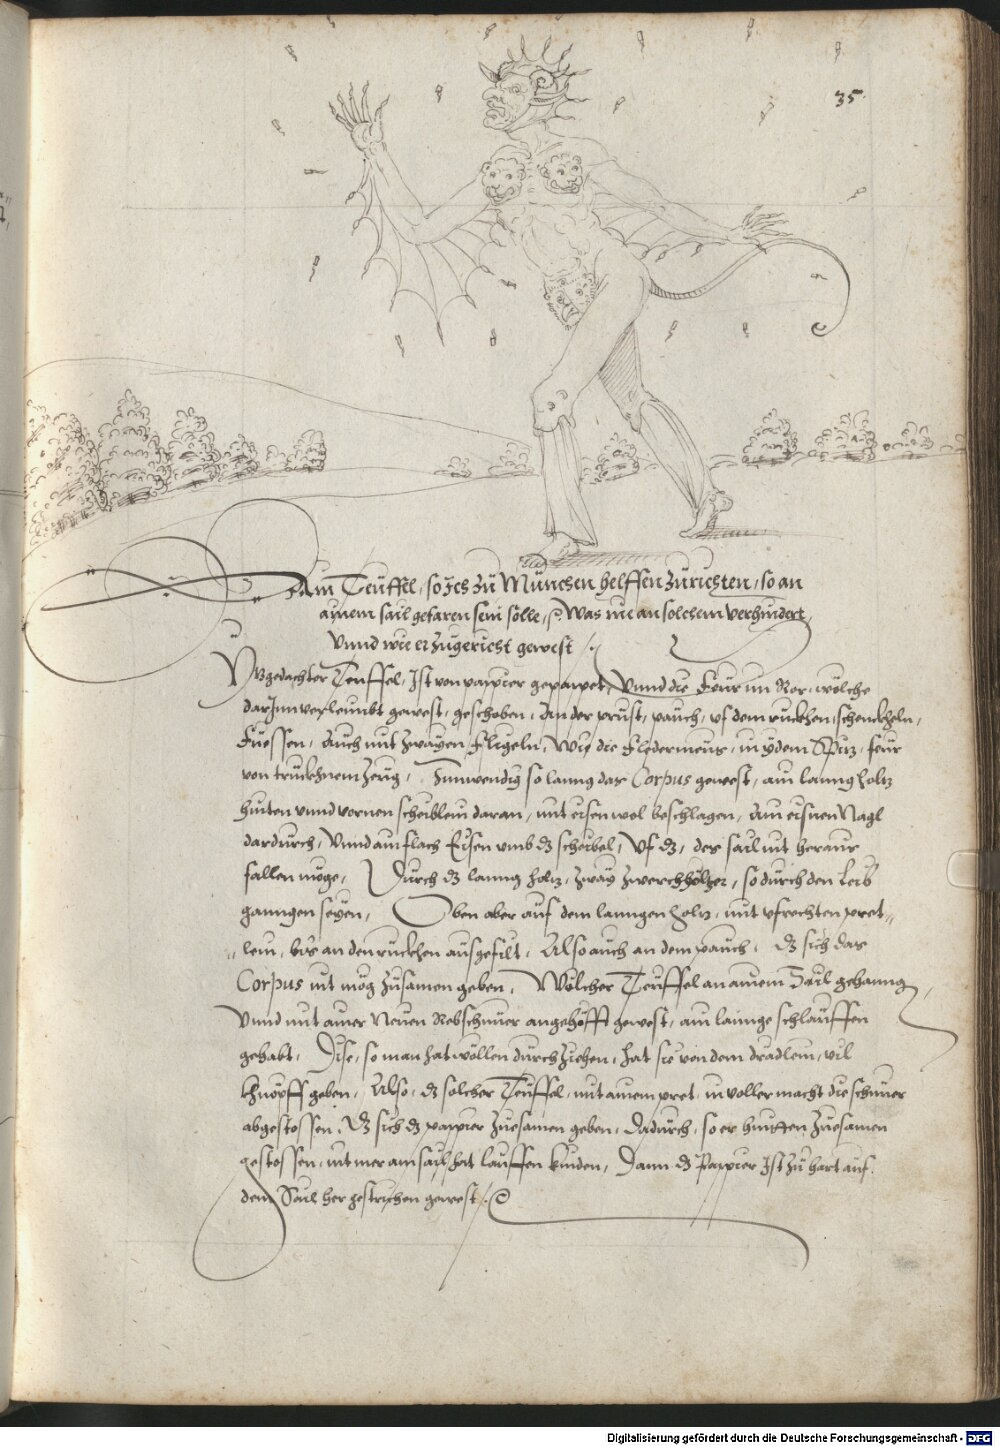 35.
Ain Teüffel, so Ich zu München helffen Zurichten, so an
ainem sail gefaren sein solle, Was me an solchem verhindert,
Vnnd wie er zugericht gewest
Obgedachter Teuffel, Ist von pappier gepapet, Vnnd die Feur im Ror, wölche
darInn verleimbt gewest, geschoben, An der prust, pauch, vf dem ruckhen, schenckheln,
Füessen, Auch mit zwayen Fligeln, Wie die Fledermeus, in ydem Spitz, feur
von truckhnem Zeug, Innwendig so lanng das Corpus gewest, ain lanng holtz
hinten vnnd vornen scheiblein daran, mit eisen wol beschlagen, Ain eisnen Nagl
dardurch, Vnnd ain flach Eisen vmb dz scheibel, Vf dz, der sail nit heraus
fallen möge, Durch dz lanng holtz, zway zwerchhöltzer, so durch den Leib
ganngen seyen, Oben aber auf dem lanngen holtz, mit vfrechten pret-
lein, bis an den ruckhen ausgefilt, Also auch an dem pauch, dz sich das
Corpus nit mög zusamen geben, Wölcher Teuffel an ainem Sail gehanng
Vnnd mit ainer Neuen Rebschnuer angehöfft gewest, ain lannge schlauffen
gehabt, Dise, so man hat wöllen durch Ziehen, hat sie von dem dradlem, vil
khnöpff geben, Also, dz solcher Teuffel, mit ainem pret, in voller macht die schnuer
abgestossen, Dz sich dz pappier zuesamen geben, Dadurch, so er hinften Zuesamen
gestossen, nit mer am sail hat lauffen künden, Dann dz Pappier Ist zu hart auf
dem Sail her gestrichen gewest
Digitalisierung gefördert durch die Deutsche Forschungsgemeinschaft - DFG